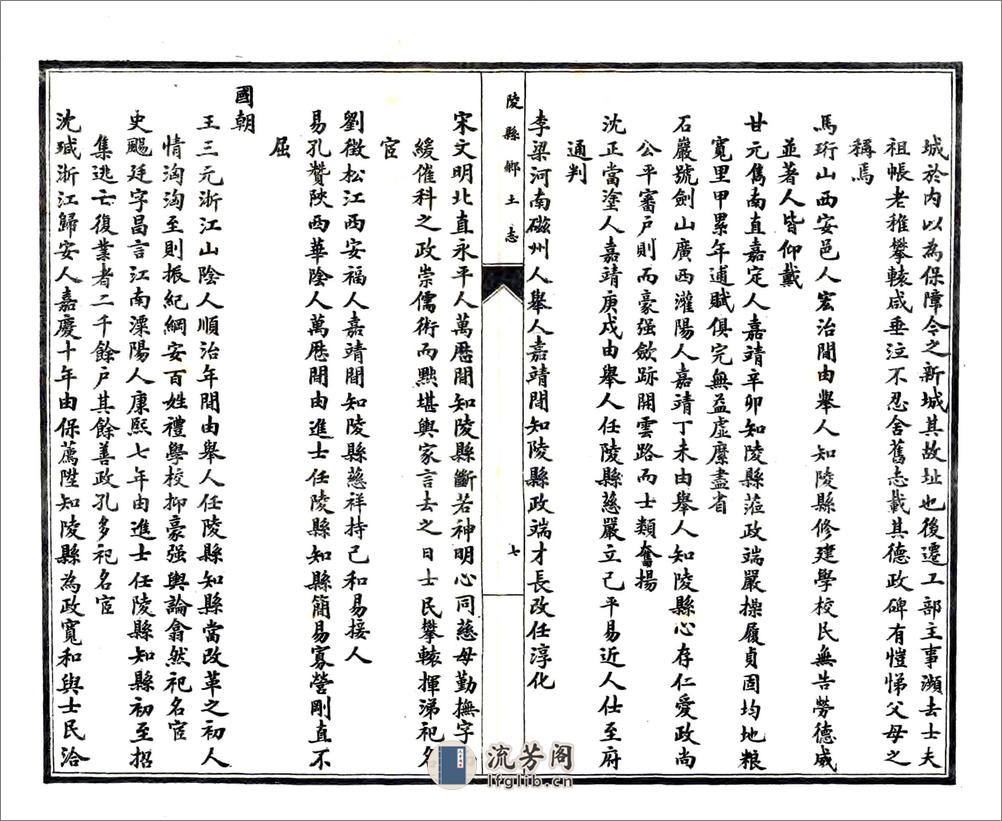 城於內以為保障今之新城其故址也後遷工部主事瀕去士夫
祖帳老稚攀轅咸垂泣不忍舍舊志載其德政碑有愷悌父母之
稱焉
馬珩山西安邑人宏治間由舉人知陵縣修建學校民無告勞德威
並著人皆仰戴
甘元雋南直嘉定人嘉靖辛卯知陵縣蒞政端嚴操履貞固均地粮
寬里甲累年逋賦俱完無益虛糜盡省
石巖號劍山廣西灌陽人嘉靖丁未由舉人知陵縣心存仁愛政尚
公平審戶則而豪强斂跡開雲路而士類奮揚
沈正當塗人嘉靖庚戌由舉人任陵縣慈嚴立己平易近人仕至府
通判
李梁河南磁州人舉人嘉靖間知陵縣政端才長改任淳化
陵縣鄉土志
七
宋文明北直永平人萬厯間知陵縣斷若神明心同慈母勤撫字而
緩催科之政崇儒術而黜堪輿家言去之日士民攀轅揮涕祀名
宦
劉徵松江西安福人嘉靖間知陵縣慈祥持己和易接人
易孔贊陝西華陰人萬厯間由進士任陵縣知縣簡易寡營剛直不
屈
國朝
王三元浙江山陰人順治年間由舉人任陵縣知縣當改革之初人
情洶洶至則振紀綱安百姓禮學校抑豪强輿論翕然祀名宦
史颺廷字昌言江南溧陽人康熙七年由進士任陵縣知縣初至招
集逃亡復業者二千餘戶其餘善政孔多祀名宦
沈珹浙江歸安人嘉慶十年由保薦陞知陵縣為政寬和與士民洽
流芳阁
lfglib.cn